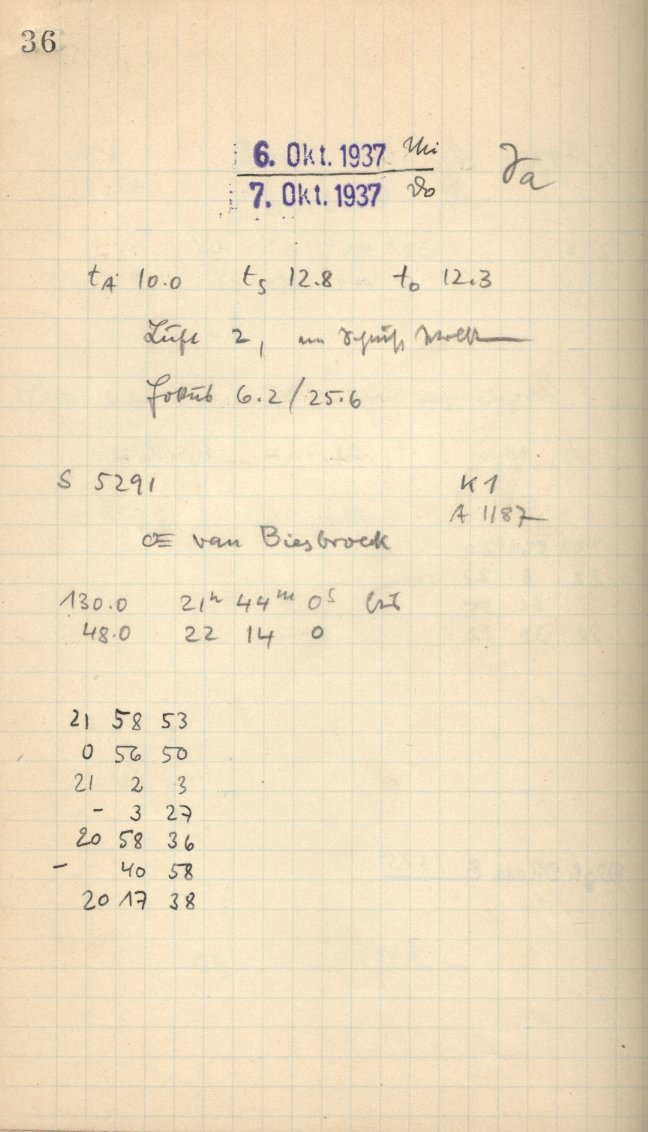 36
6. Okt. 1937 Mi
7. Okt. 1937 Do
Ja
tA 10.0 tS 12.8 to 12.3
Luft 2, am Schluß
Fokus 6.2/25.6
S 5291 K1
A 1187
van Biesbroeck
130.0 21h 44m 0s
48.0 22 14 0
21 58 53
0 56 50
21 2 3
- 3 27
20 58 36
- 40 58
20 17 38